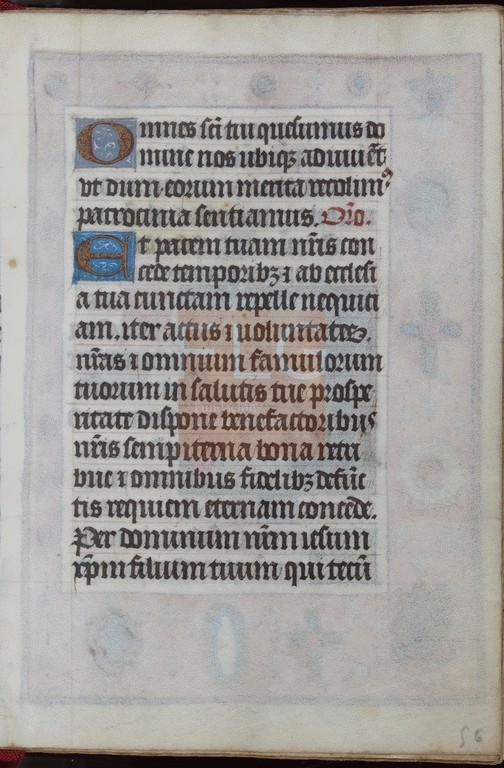 Omnes sc̄i tui quesumus do
mine nos ubiqꝫ adiuuēt
vt dum eorum merita recolimꝰ
patrocinia sentiamus. Or̄o.
Et pacem tuam nr̄is con
cede temporibꝫ ⁊ ab ecclesi
a tua cunctam repelle nequici
am. iter actus ⁊ uoluntates
nr̄as ⁊ omnium famulorum
tuorum in salutis tue prospe
ritate dispone benefactoribus
nr̄is sempiterna bona retri
bue ⁊ omnibus fidelibꝫ defūc
tis requiem eternam concede.
Per dominum nr̄m iesum
xp̄m filium tuum qui tecū
56